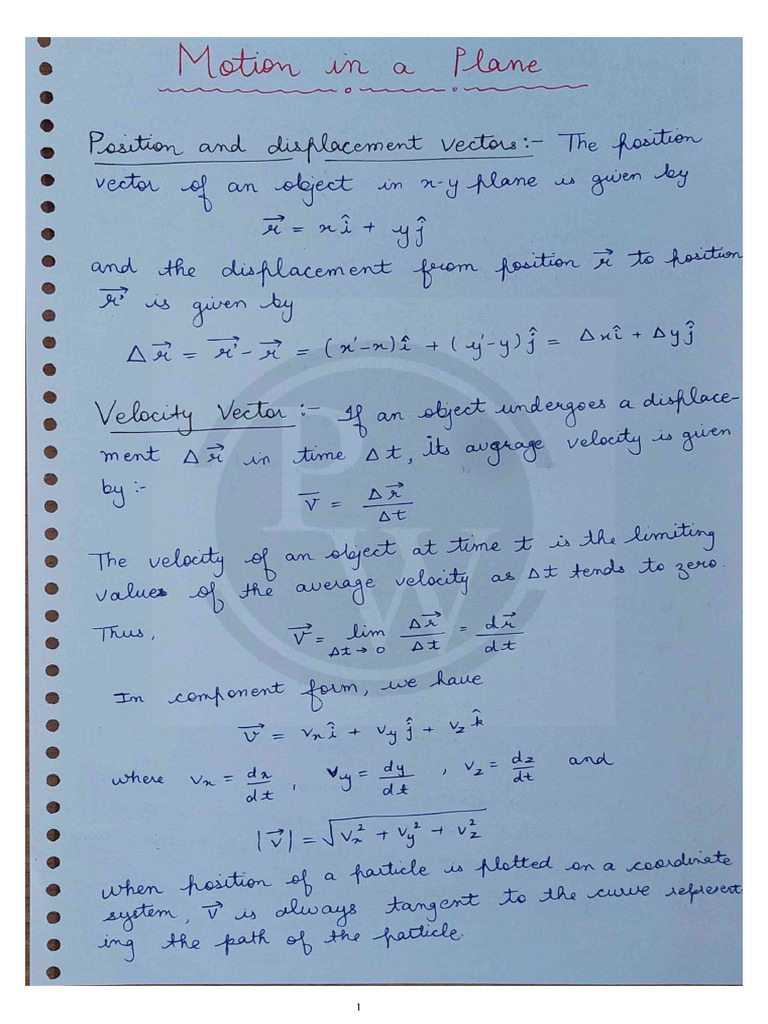 Motion in a Plane
Position and displacement vectors:- The position
vector of an object in x-y plane is given by
r⃗ = xî + yĵ
and the displacement from position r⃗ to position
r⃗' is given by
Δr⃗ = r⃗' - r⃗ = (x'-x)î + (y'-y)ĵ = Δxî + Δyĵ
Velocity Vector:- If an object undergoes a displace-
ment Δr⃗ in time Δt, its avgrage velocity is given
by:-
v̅ = Δr⃗/Δt
The velocity of an object at time t is the limiting
values of the average velocity as Δt tends to zero.
Thus, v⃗ = lim Δt→0 Δr⃗/Δt = dr⃗/dt
In component form, we have
v⃗ = vₓî + v_yĵ + v_zk̂
where vₓ = dx/dt, v_y = dy/dt, v_z = dz/dt and
|v⃗| = √(vₓ² + v_y² + v_z²)
When position of a particle is plotted on a coordinate
system, v⃗ is always tangent to the curve represent-
ing the path of the particle.
PW
1